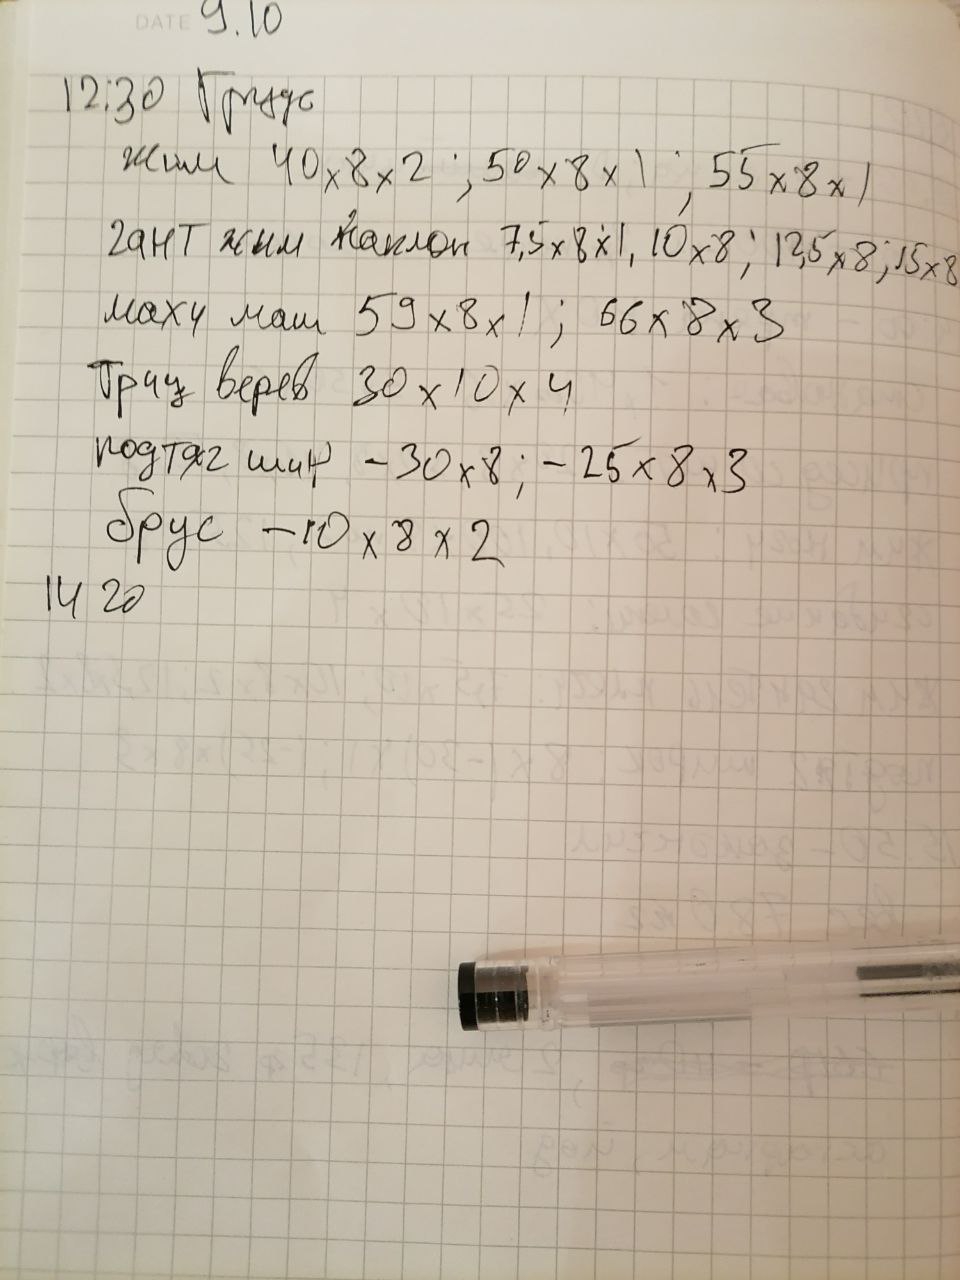 DATE 9.10
12:30 Грудь
жим 40x8x2; 50x8x1; 55x8x1
гант жим наклон 7,5x8x1, 10x8; 12,5x8; 15x8
махи маш 59x8x1; 66x8x3
Триц верев 30x10x4
подтяг шир -30x8; -25x8x3
брус -10x8x2
14 20